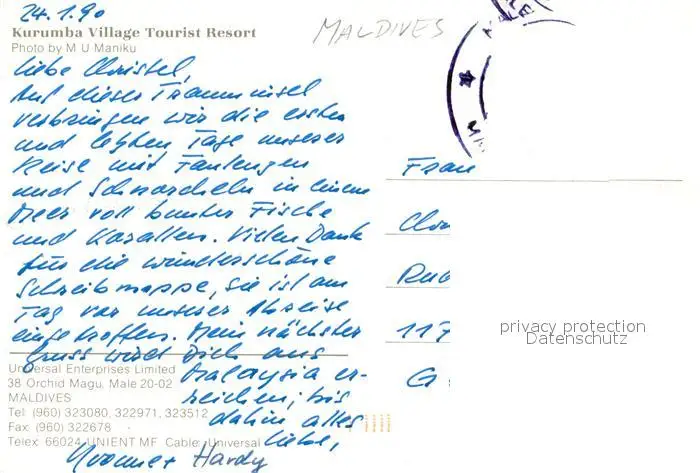 24.1.90
Kurumba Village Tourist Resort
Photo by M U Maniku
MALDIVES
MALE
Liebe Christel,
Auf dieser Trauminsel
verbringen wir die ersten
und letzten Tage unserer
Reise mit Faulenzen
und Schnorcheln in einem
Meer voll bunter Fische
und Korallen. Vielen Dank
für die wunderschöne
Schreibmappe, sie ist am
Tag vor unserer Abreise
eingetroffen. Mein nächster
Gruss wird Dich aus
Malaysia er-
reichen; bis
dahin alles
Liebe,
Yvonne + Hardy
Universal Enterprises Limited
38 Orchid Magu, Male 20-02
MALDIVES
Tel: (960) 323080, 322971, 323512
Fax: (960) 322678
Telex: 66024 UNIENT MF Cable: Universal
Frau
117
privacy protection
Datenschutz